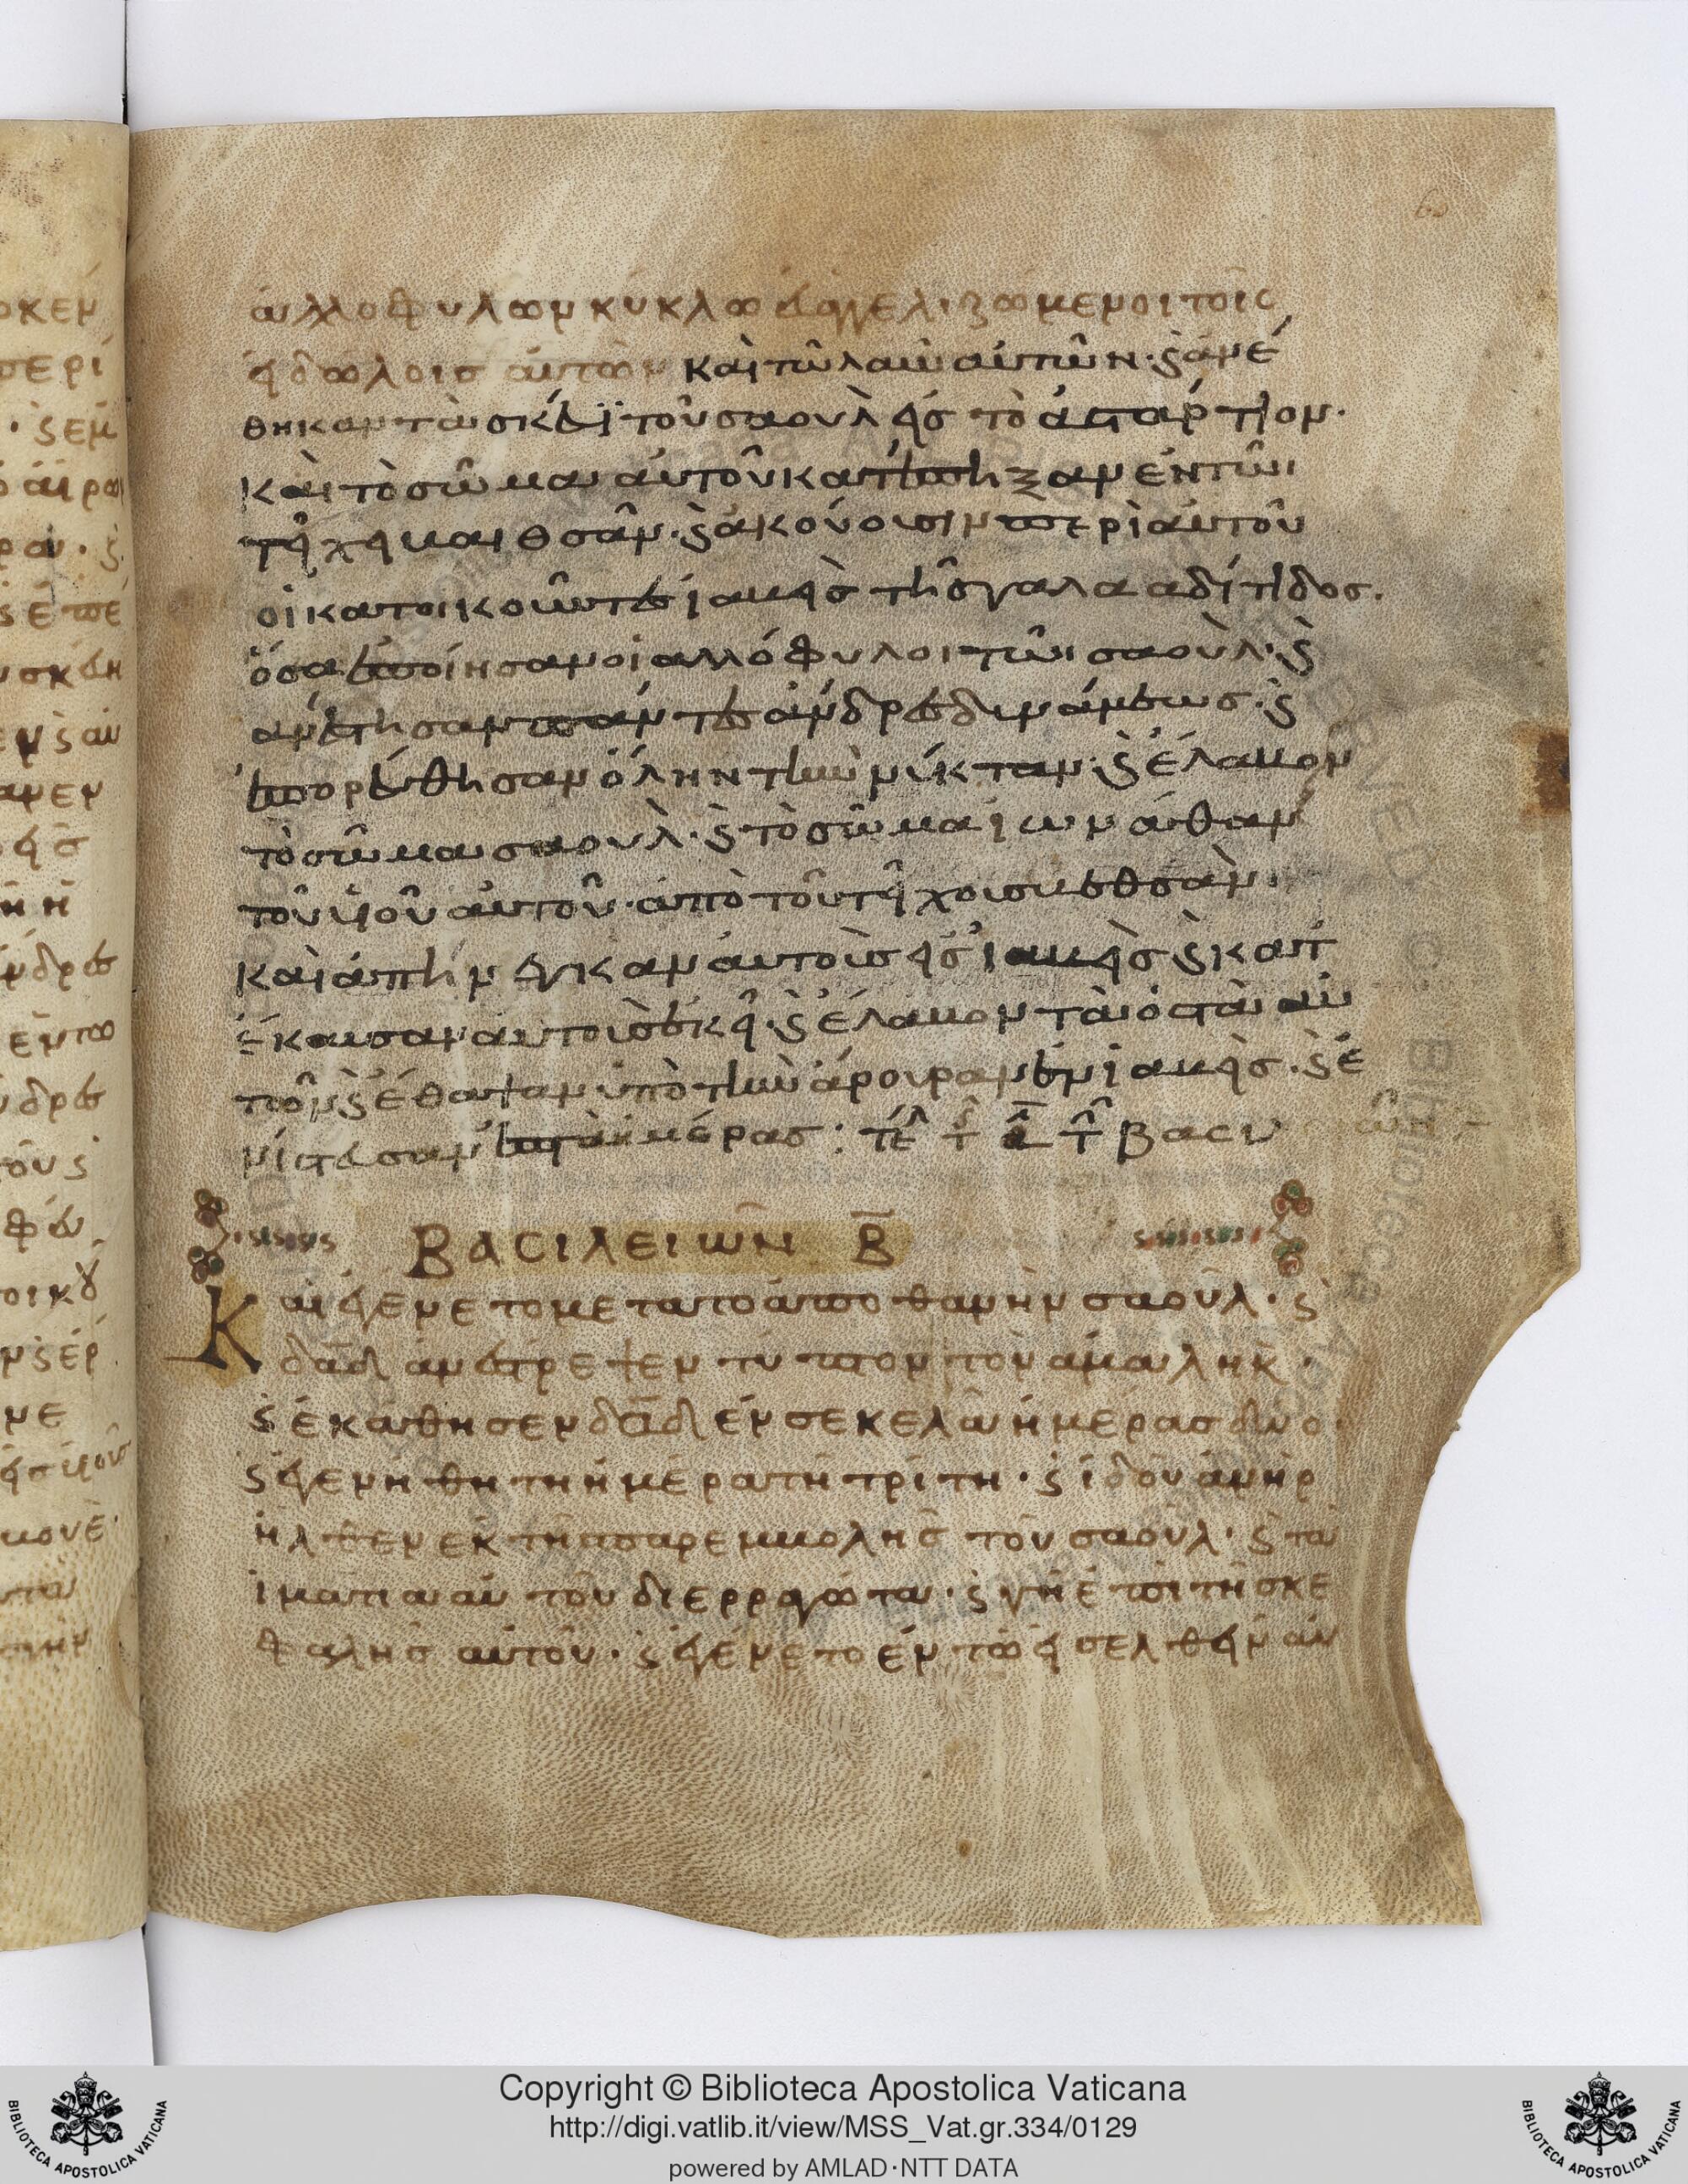 ἀλλοφύλων κύκλω εὐαγγελιζώμενοι τοῖς
εἰδώλοις αὐτῶν καὶ τῶ λαῶ αὐτῶν · ϛ ἀνέ
θηκαν τὰ σκεύη τοῦ σαοὺλ εἰς τὸ ἀσταρτῖον ·
καὶ τὸ σῶμα αὐτοῦ κατέπηξαν ἐν τῶι
τείχει βαιθσάν · ϛ ἀκούουσιν περὶ αὐτοῦ
οἱ κατοικοῦντες ἰαβεὶς τῆς γαλααδίτιδος ·
ὅσα ἐποίησαν οἱ αλλόφυλοι τῶι σαοὺλ · ϛ
ανέστησαν πᾶν τες ἄνδρες δυνάμεως · ϛ
ἐπορεύθησαν ὅλην τὴν νύκταν · ϛ ἔλαβον
τὸ σῶμα σαοὺλ · ϛ τὸ σῶμα ἰωνάθαν
τοῦ υἱοῦ αὐτοῦ · ἀπὸ τοῦ τείχους βεθσὰν ·
καὶ ἀπήνεγκαν αὐτοὺς εἰς ἰαβεὶς ϛ κατ
έκαυσαν αὐτοὺς ἐκεῖ · ϛ ἔλαβον τὰ ὀστᾶ αὐ
τῶν ϛ ἔθαψαν ὑπὸ τὴν ἄρουραν ἐν ἰαβεὶς · ϛ ἐ
νίστευσαν ἑπτὰ ἡμέρας : τέλ τ α τ βασι ῶν
ΒΑϹΙΛΕΙΩΝ Β
Καὶ ἐγένετο μετὰ τὸ ἀποθανὴν σαοῦλ · ϛ
δαδ ἀνέστρεψεν τύπτον τὸν ἀμαλήκ ·
ϛ ἐκάθησεν δαδ ἐν σεκελὰ ἡμέρας δύο ·
ϛ ἐγενήθη τῆ ἡμέρα τῆ τρίτη · ϛ ἰδοῦ ἀνὴρ
ἦλθεν ἐκ τῆς παρεμβολῆς τοῦ σαοῦλ · ϛ τὰ
ἱμάτια αὐτοῦ διερρηγῶτα · ϛ γῆ ἐπὶ τῆς κε
φαλῆς αὐτοῦ · ϛ ἐγένετο ἐν τῶ εἰσελθεῖν αὐ
Copyright © Biblioteca Apostolica Vaticana
http://digi.vatlib.it/view/MSS_Vat.gr.334/0129
powered by AMLAD·NTT DATA
BIBLIOTECA APOSTOLICA VATICANA
BIBLIOTECA APOSTOLICA VATICANA